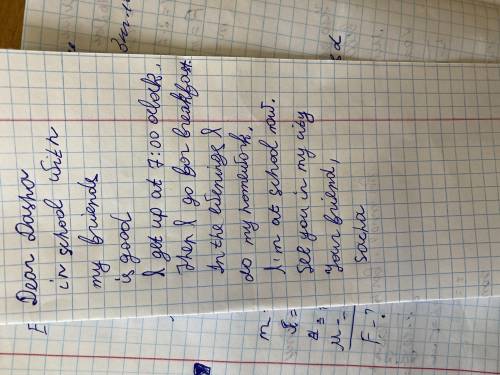 Dear Dasha
in school with
my friends
is good
I get up at 7:00 oclock,
Then I go for breakfast.
In the evenings I
do my homework.
I'm at school now.
See you in my city
your friend,
Sacha